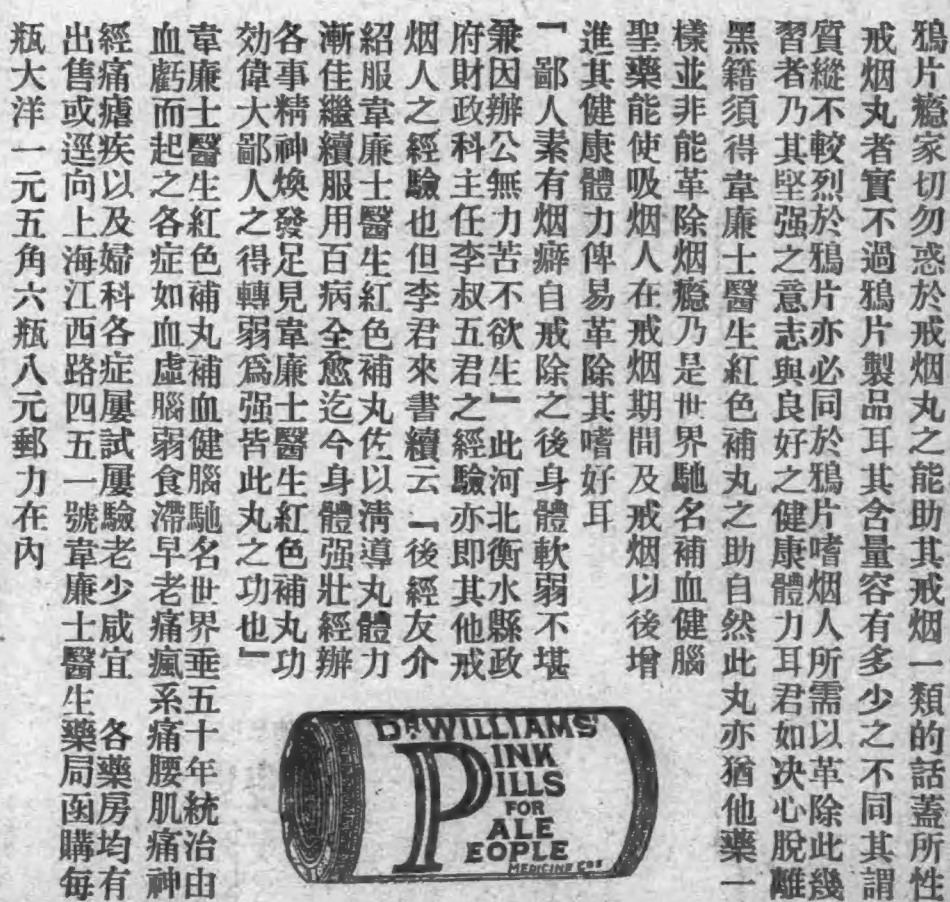 鴉片癮家切勿惑於戒烟丸之能助其戒烟一類的話蓋所性
戒烟丸者實不過鴉片製品耳其含量容有多少之不同其謂
質縱不較烈於鴉片亦必同於鴉片嗜烟人所需以革除此幾
習者乃其堅强之意志與良好之健康體力耳君如決心脫離
黑籍須得韋廉士醫生紅色補丸之助自然此丸亦猶他藥一
樣並非能革除烟癮乃是世界馳名補血健腦
聖藥能使吸烟人在戒烟期間及戒烟以後增
進其健康體力俾易革除其嗜好耳
「鄙人素有烟癖自戒除之後身體軟弱不堪
兼因辦公無力苦不欲生」此河北衡水縣政
府財政科主任李叔五君之經驗亦即其他戒
烟人之經驗也但李君來書續云「後經友介
紹服韋廉士醫生紅色補丸佐以清導丸體力
漸佳繼續服用百病全愈迄今身體强壯經辦
各事精神煥發足見韋廉士醫生紅色補丸功
効偉大鄙人之得轉弱爲强皆此丸之功也」
韋廉士醫生紅色補丸補血健腦馳名世界垂五十年統治由
血虧而起之各症如血虛腦弱食滯早老痛瘋系痛腰肌痛神
經痛瘧疾以及婦科各症屢試屢驗老少咸宜 各藥房均有
出售或逕向上海江西路四五一號韋廉士醫生藥局函購每
瓶大洋一元五角六瓶八元郵力在內
DR WILLIAMS'
PINK
PILLS
FOR
PALE
PEOPLE
MEDICINE Co's